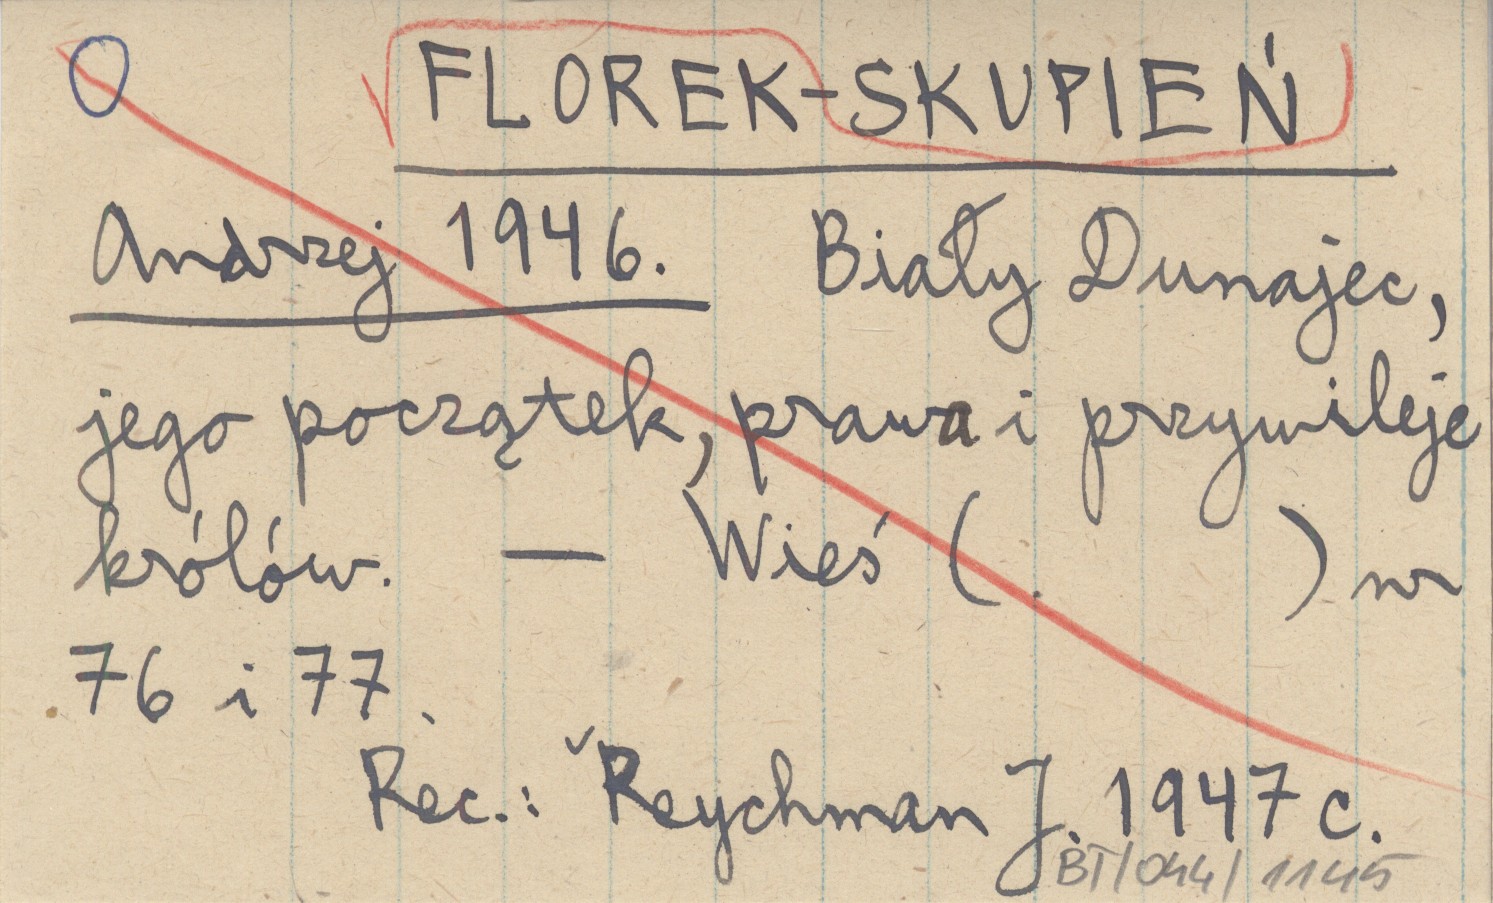 FLOREK-SKUPIEŃ
Andrzej 1946. Biały Dunajec,
jego początek, prawa i przywileje
królów. — Wieś (. ) nr
76 i 77.
Rec.: Reychman J. 1947 c.
BT/044/1145